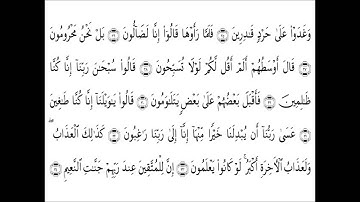 وَغَدَوْا۟ عَلَىٰ حَرْدٍۢ قَـٰدِرِينَ ۝٢٥ فَلَمَّا رَأَوْهَا قَالُوٓا۟ إِنَّا لَضَآلُّونَ ۝٢٦ بَلْ نَحْنُ مَحْرُومُونَ
۝٢٧ قَالَ أَوْسَطُهُمْ أَلَمْ أَقُل لَّكُمْ لَوْلَا تُسَبِّحُونَ ۝٢٨ قَالُوا۟ سُبْحَـٰنَ رَبِّنَآ إِنَّا كُنَّا
ظَـٰلِمِينَ ۝٢٩ فَأَقْبَلَ بَعْضُهُمْ عَلَىٰ بَعْضٍۢ يَتَلَـٰوَمُونَ ۝٣٠ قَالُوا۟ يَـٰوَيْلَنَآ إِنَّا كُنَّا طَـٰغِينَ
۝٣١ عَسَىٰ رَبُّنَآ أَن يُبْدِلَنَا خَيْرًۭا مِّنْهَآ إِنَّآ إِلَىٰ رَبِّنَا رَٰغِبُونَ ۝٣٢ كَذَٰلِكَ ٱلْعَذَابُ ۖ
وَلَعَذَابُ ٱلْـَٔاخِرَةِ أَكْبَرُ ۚ لَوْ كَانُوا۟ يَعْلَمُونَ ۝٣٣ إِنَّ لِلْمُتَّقِينَ عِندَ رَبِّهِمْ جَنَّـٰتِ ٱلنَّعِيمِ ۝٣٤